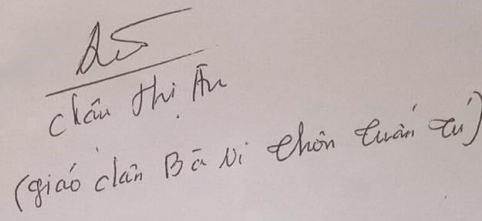 Châu Thị Ân
(giáo dân Bà Ni thôn Tuấn Tú)